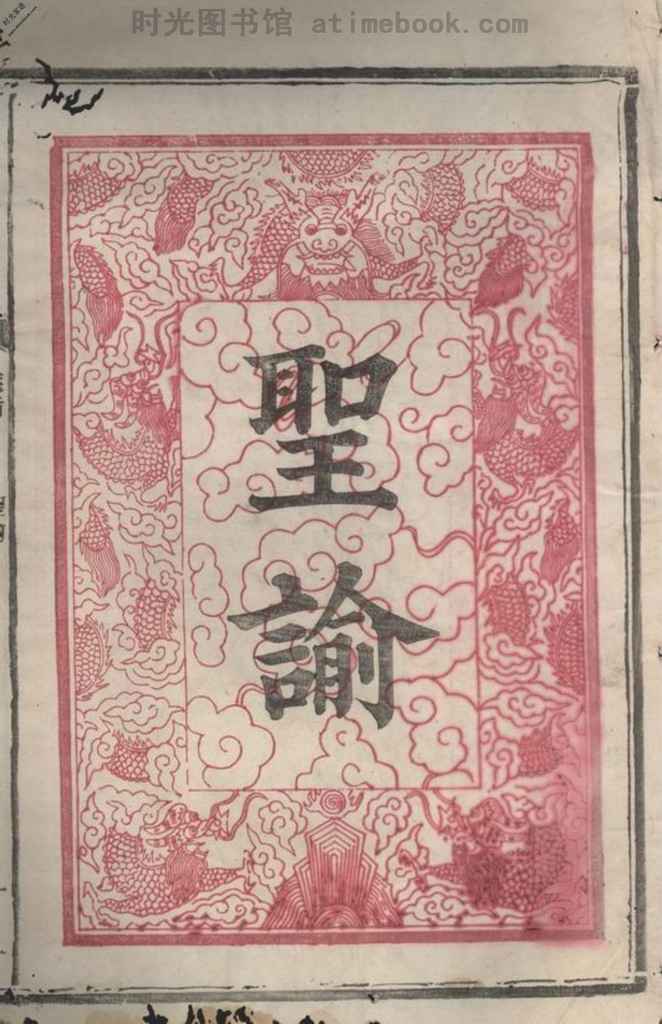 时光图书馆 atimebook.com
聖
諭